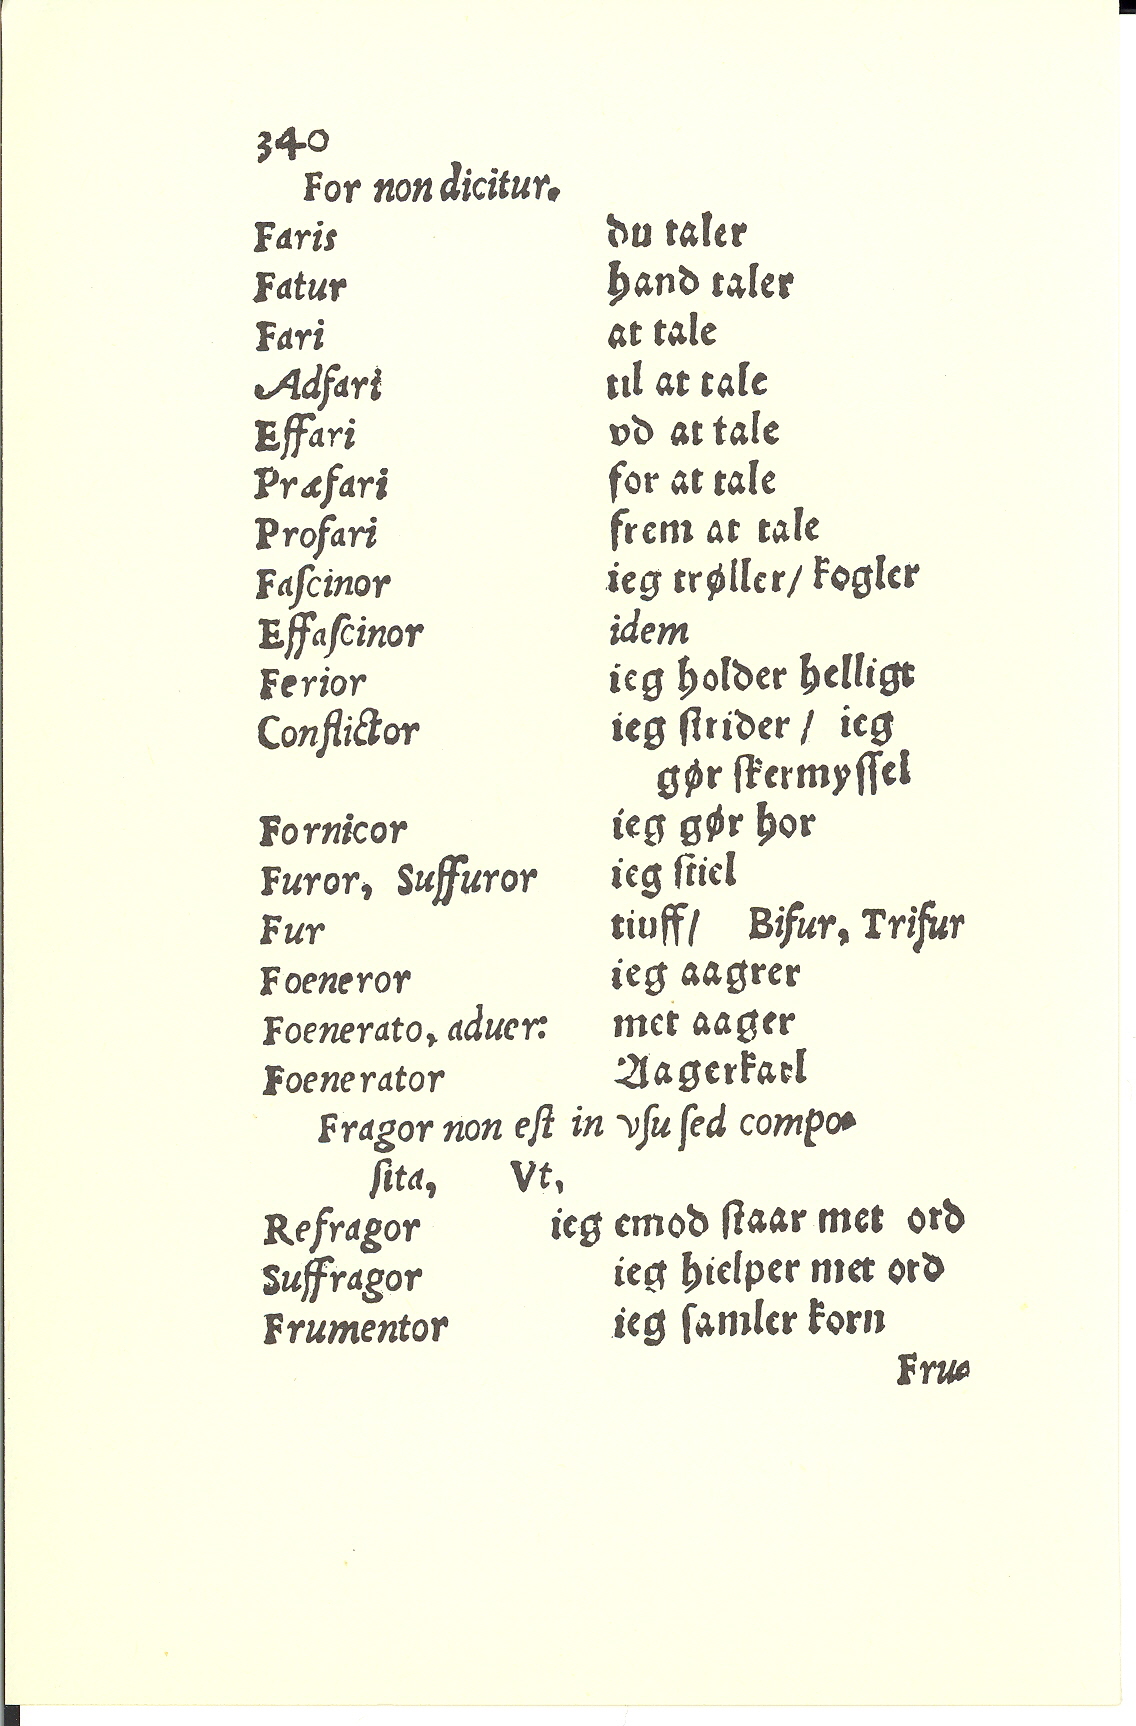 340
For non dicitur.
Faris du taler
Fatur hand taler
Fari at tale
Adfari til at tale
Effari vd at tale
Præfari for at tale
Profari frem at tale
Faſcinor ieg trøller/ kogler
Effaſcinor idem
Ferior ieg holder helligt
Conflictor ieg ſtrider / ieg
gør ſkermyſſel
Fornicor ieg gør hor
Furor, Suffuror ieg ſtiel
Fur tiuff/ Bifur, Trifur
Foeneror ieg aagrer
Foenerato, aduer: met aager
Foenerator Aagerkarl
Fragor non eſt in vſu ſed compo-
ſita, Vt,
Refragor ieg emod ſtaar met ord
Suffragor ieg hielper met ord
Frumentor ieg ſamler korn
Fru-